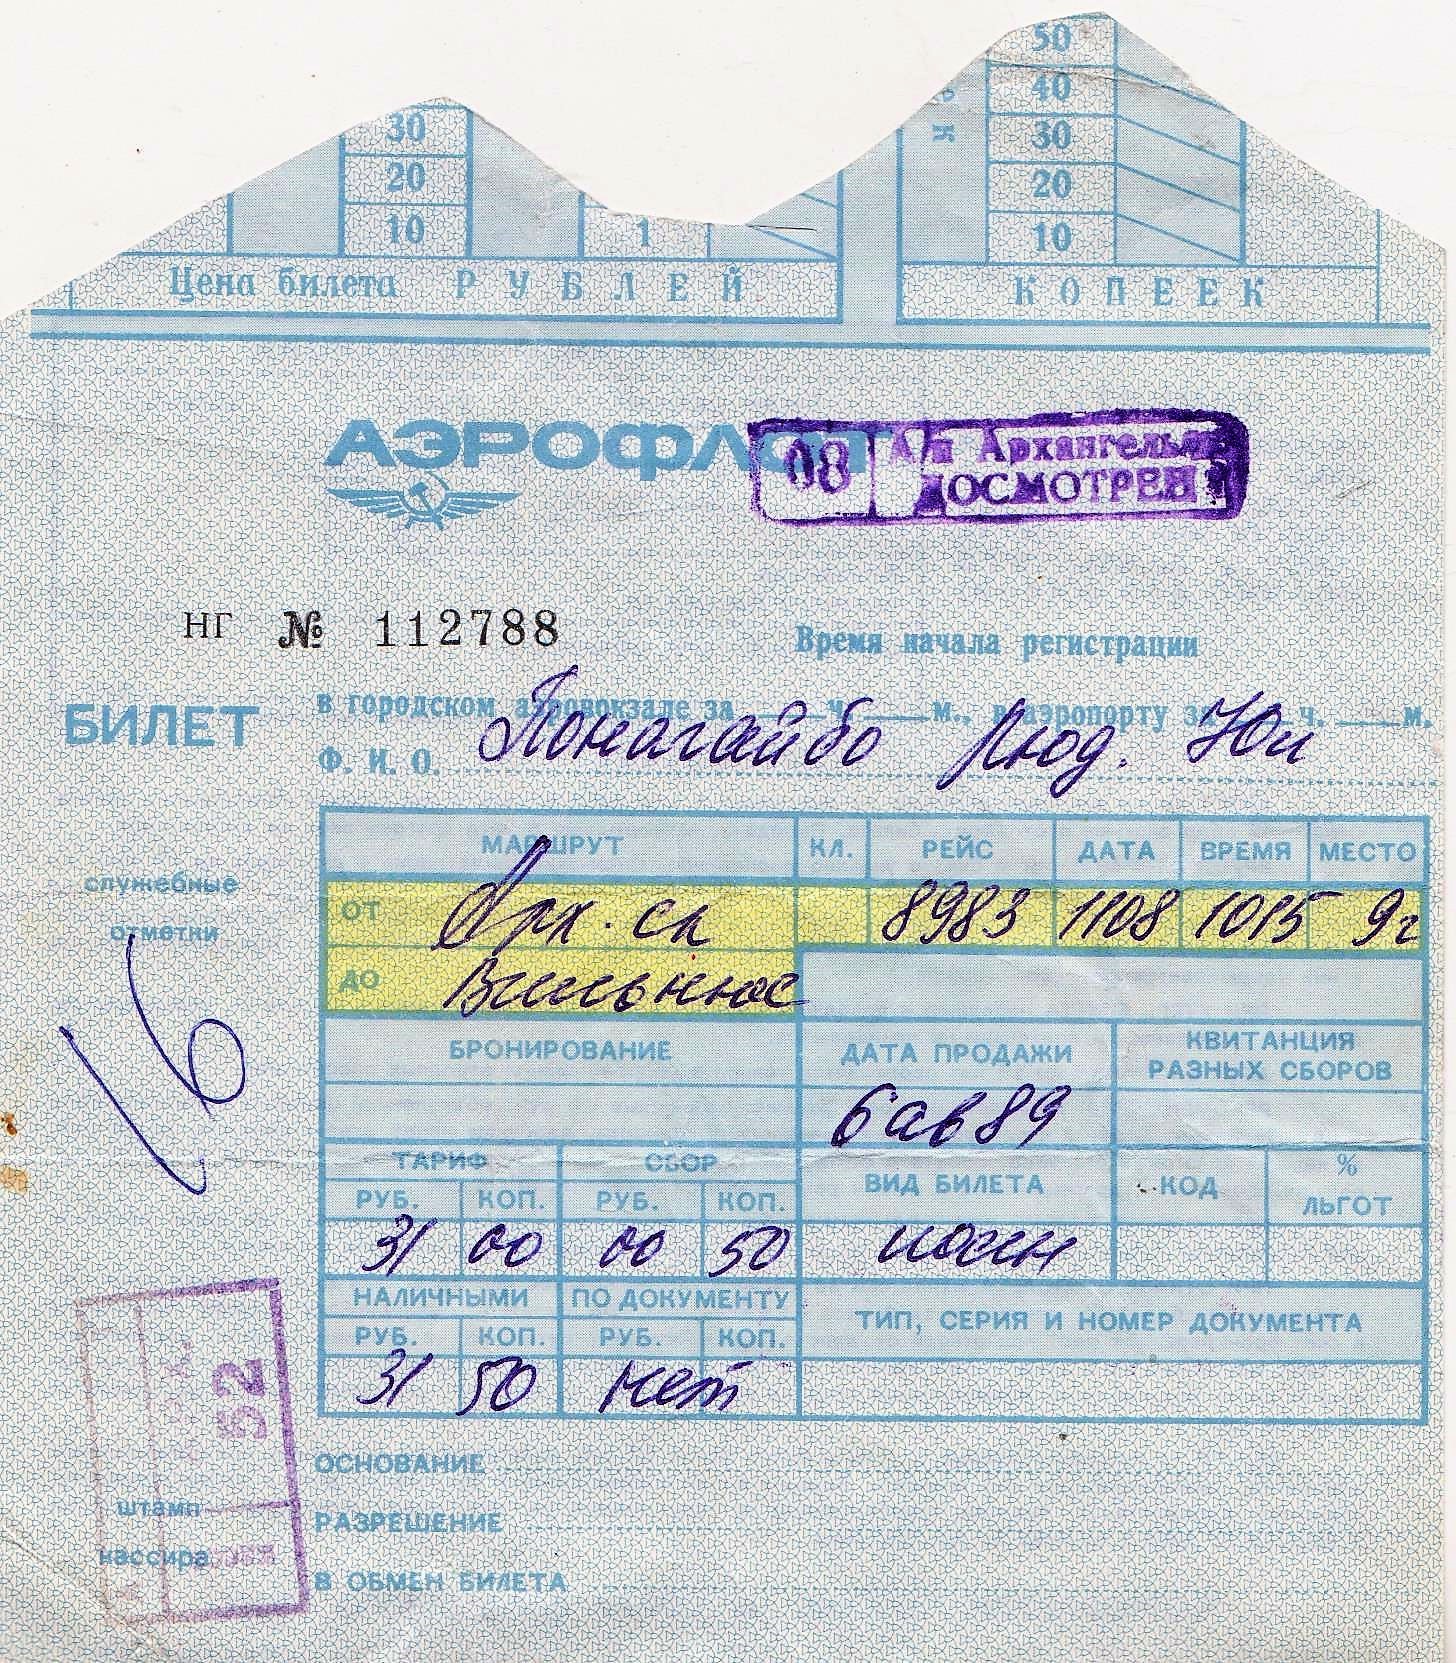 50
40
30 30
20 20
10 1 10
Цена билета РУБЛЕЙ КОПЕЕК
АЭРОФЛОТ 08 А/п Архангельск
ДОСМОТРЕН
НГ № 112788
Время начала регистрации
в городском аэровокзале за ч. м., в аэропорту за ч. м.
БИЛЕТ
Ф. И. О. Понагайбо Люд. Юл
МАРШРУТ КЛ. РЕЙС ДАТА ВРЕМЯ МЕСТО
служебные отметки
ОТ Арх-ск 8983 1108 1015 9г
ДО Вильнюс
16
БРОНИРОВАНИЕ ДАТА ПРОДАЖИ КВИТАНЦИЯ РАЗНЫХ СБОРОВ
6ав89
ТАРИФ СБОР ВИД БИЛЕТА КОД % ЛЬГОТ
РУБ. КОП. РУБ. КОП.
31 00 00 50
НАЛИЧНЫМИ ПО ДОКУМЕНТУ ТИП, СЕРИЯ И НОМЕР ДОКУМЕНТА
РУБ. КОП. РУБ. КОП.
31 50 нет
52
ОСНОВАНИЕ
штамп кассира
РАЗРЕШЕНИЕ
В ОБМЕН БИЛЕТА